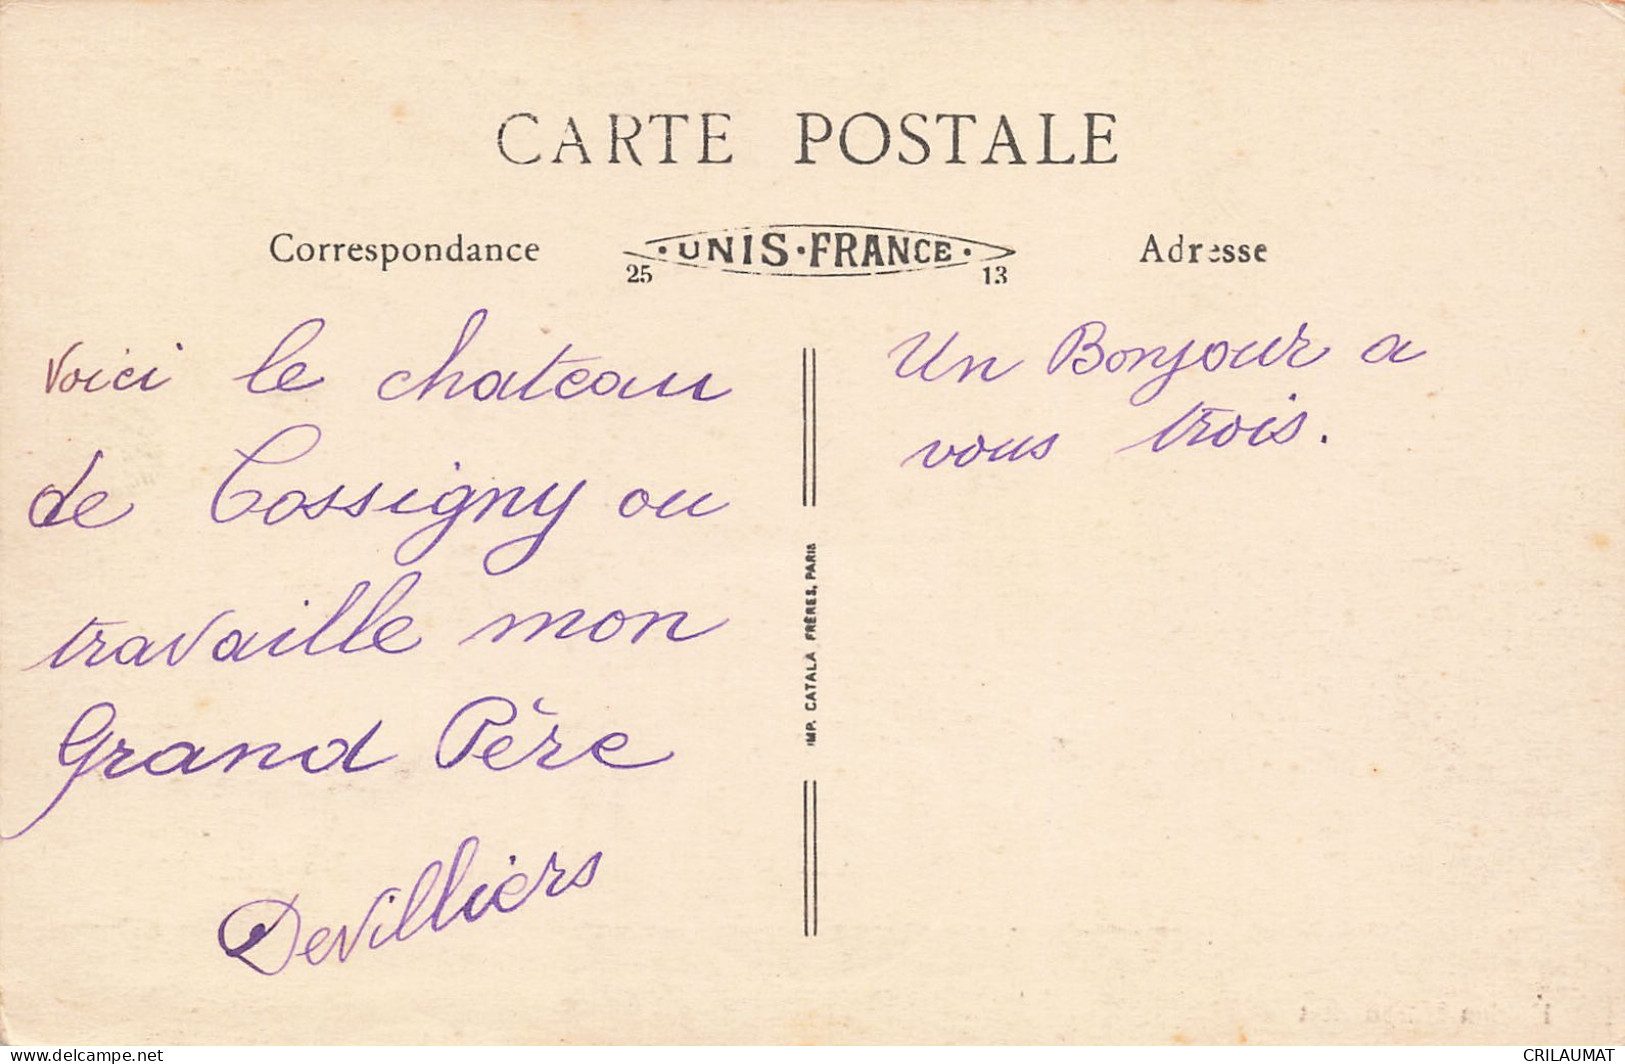 CARTE POSTALE
Correspondance
· UNIS · FRANCE ·
25 13
Adresse
Voici le chateau
de Cossigny ou
travaille mon
Grand Père
Devilliers
IMP. CATALA FRÈRES, PARIS
Un Bonjour a
vous trois.
delcampe.net
CRILAUMAT